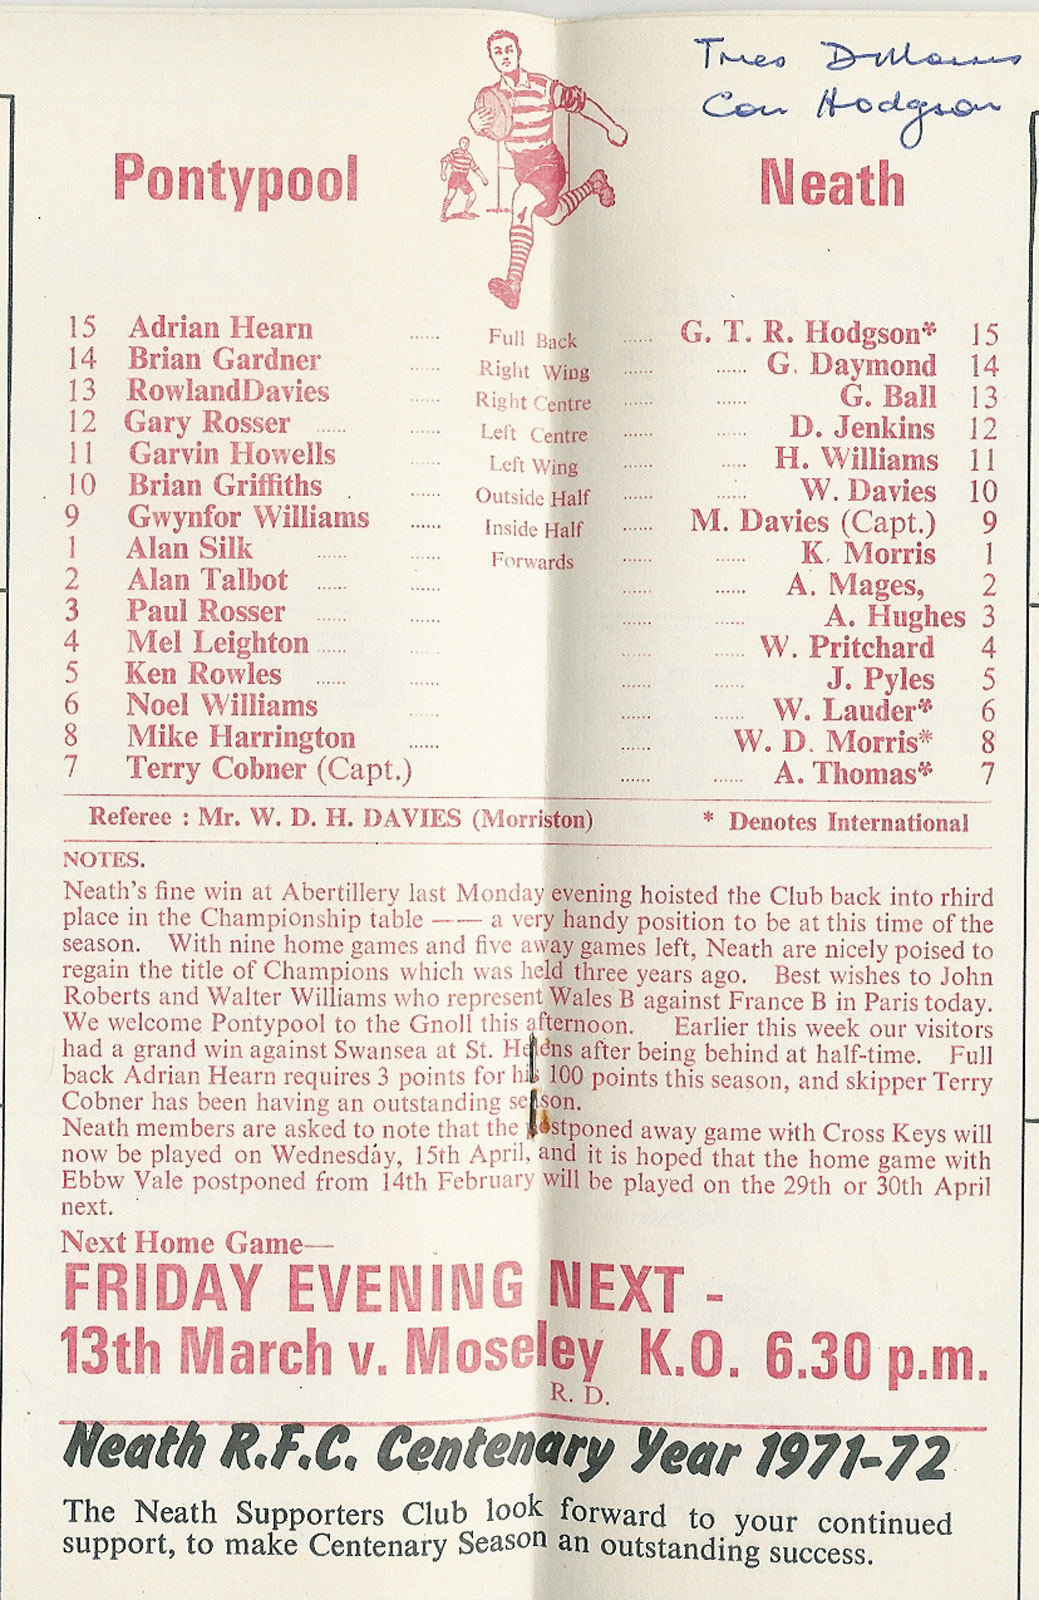 Tries D Morris
Con Hodgson
Pontypool Neath
15 Adrian Hearn ...... Full Back ...... G. T. R. Hodgson* 15
14 Brian Gardner ...... Right Wing ...... ...... G. Daymond 14
13 RowlandDavies ...... Right Centre ...... ...... G. Ball 13
12 Gary Rosser ...... ...... Left Centre ...... ...... D. Jenkins 12
11 Garvin Howells ...... Left Wing ...... ...... H. Williams 11
10 Brian Griffiths ...... Outside Half ...... ...... W. Davies 10
9 Gwynfor Williams ...... Inside Half ...... M. Davies (Capt.) 9
1 Alan Silk ...... ...... Forwards ...... ...... K. Morris 1
2 Alan Talbot ...... ...... ...... ...... A. Mages, 2
3 Paul Rosser ...... ...... ...... ...... A. Hughes 3
4 Mel Leighton ...... ...... ...... ...... W. Pritchard 4
5 Ken Rowles ...... ...... ...... ...... J. Pyles 5
6 Noel Williams ...... ...... ...... W. Lauder* 6
8 Mike Harrington ...... ...... W. D. Morris* 8
7 Terry Cobner (Capt.) ...... ...... A. Thomas* 7
Referee : Mr. W. D. H. DAVIES (Morriston) * Denotes International
NOTES.
Neath's fine win at Abertillery last Monday evening hoisted the Club back into rhird
place in the Championship table —— a very handy position to be at this time of the
season. With nine home games and five away games left, Neath are nicely poised to
regain the title of Champions which was held three years ago. Best wishes to John
Roberts and Walter Williams who represent Wales B against France B in Paris today.
We welcome Pontypool to the Gnoll this afternoon. Earlier this week our visitors
had a grand win against Swansea at St. Helens after being behind at half-time. Full
back Adrian Hearn requires 3 points for his 100 points this season, and skipper Terry
Cobner has been having an outstanding season.
Neath members are asked to note that the postponed away game with Cross Keys will
now be played on Wednesday, 15th April, and it is hoped that the home game with
Ebbw Vale postponed from 14th February will be played on the 29th or 30th April
next.
Next Home Game—
FRIDAY EVENING NEXT -
13th March v. Moseley K.O. 6.30 p.m.
R. D.
Neath R.F.C. Centenary Year 1971-72
The Neath Supporters Club look forward to your continued
support, to make Centenary Season an outstanding success.